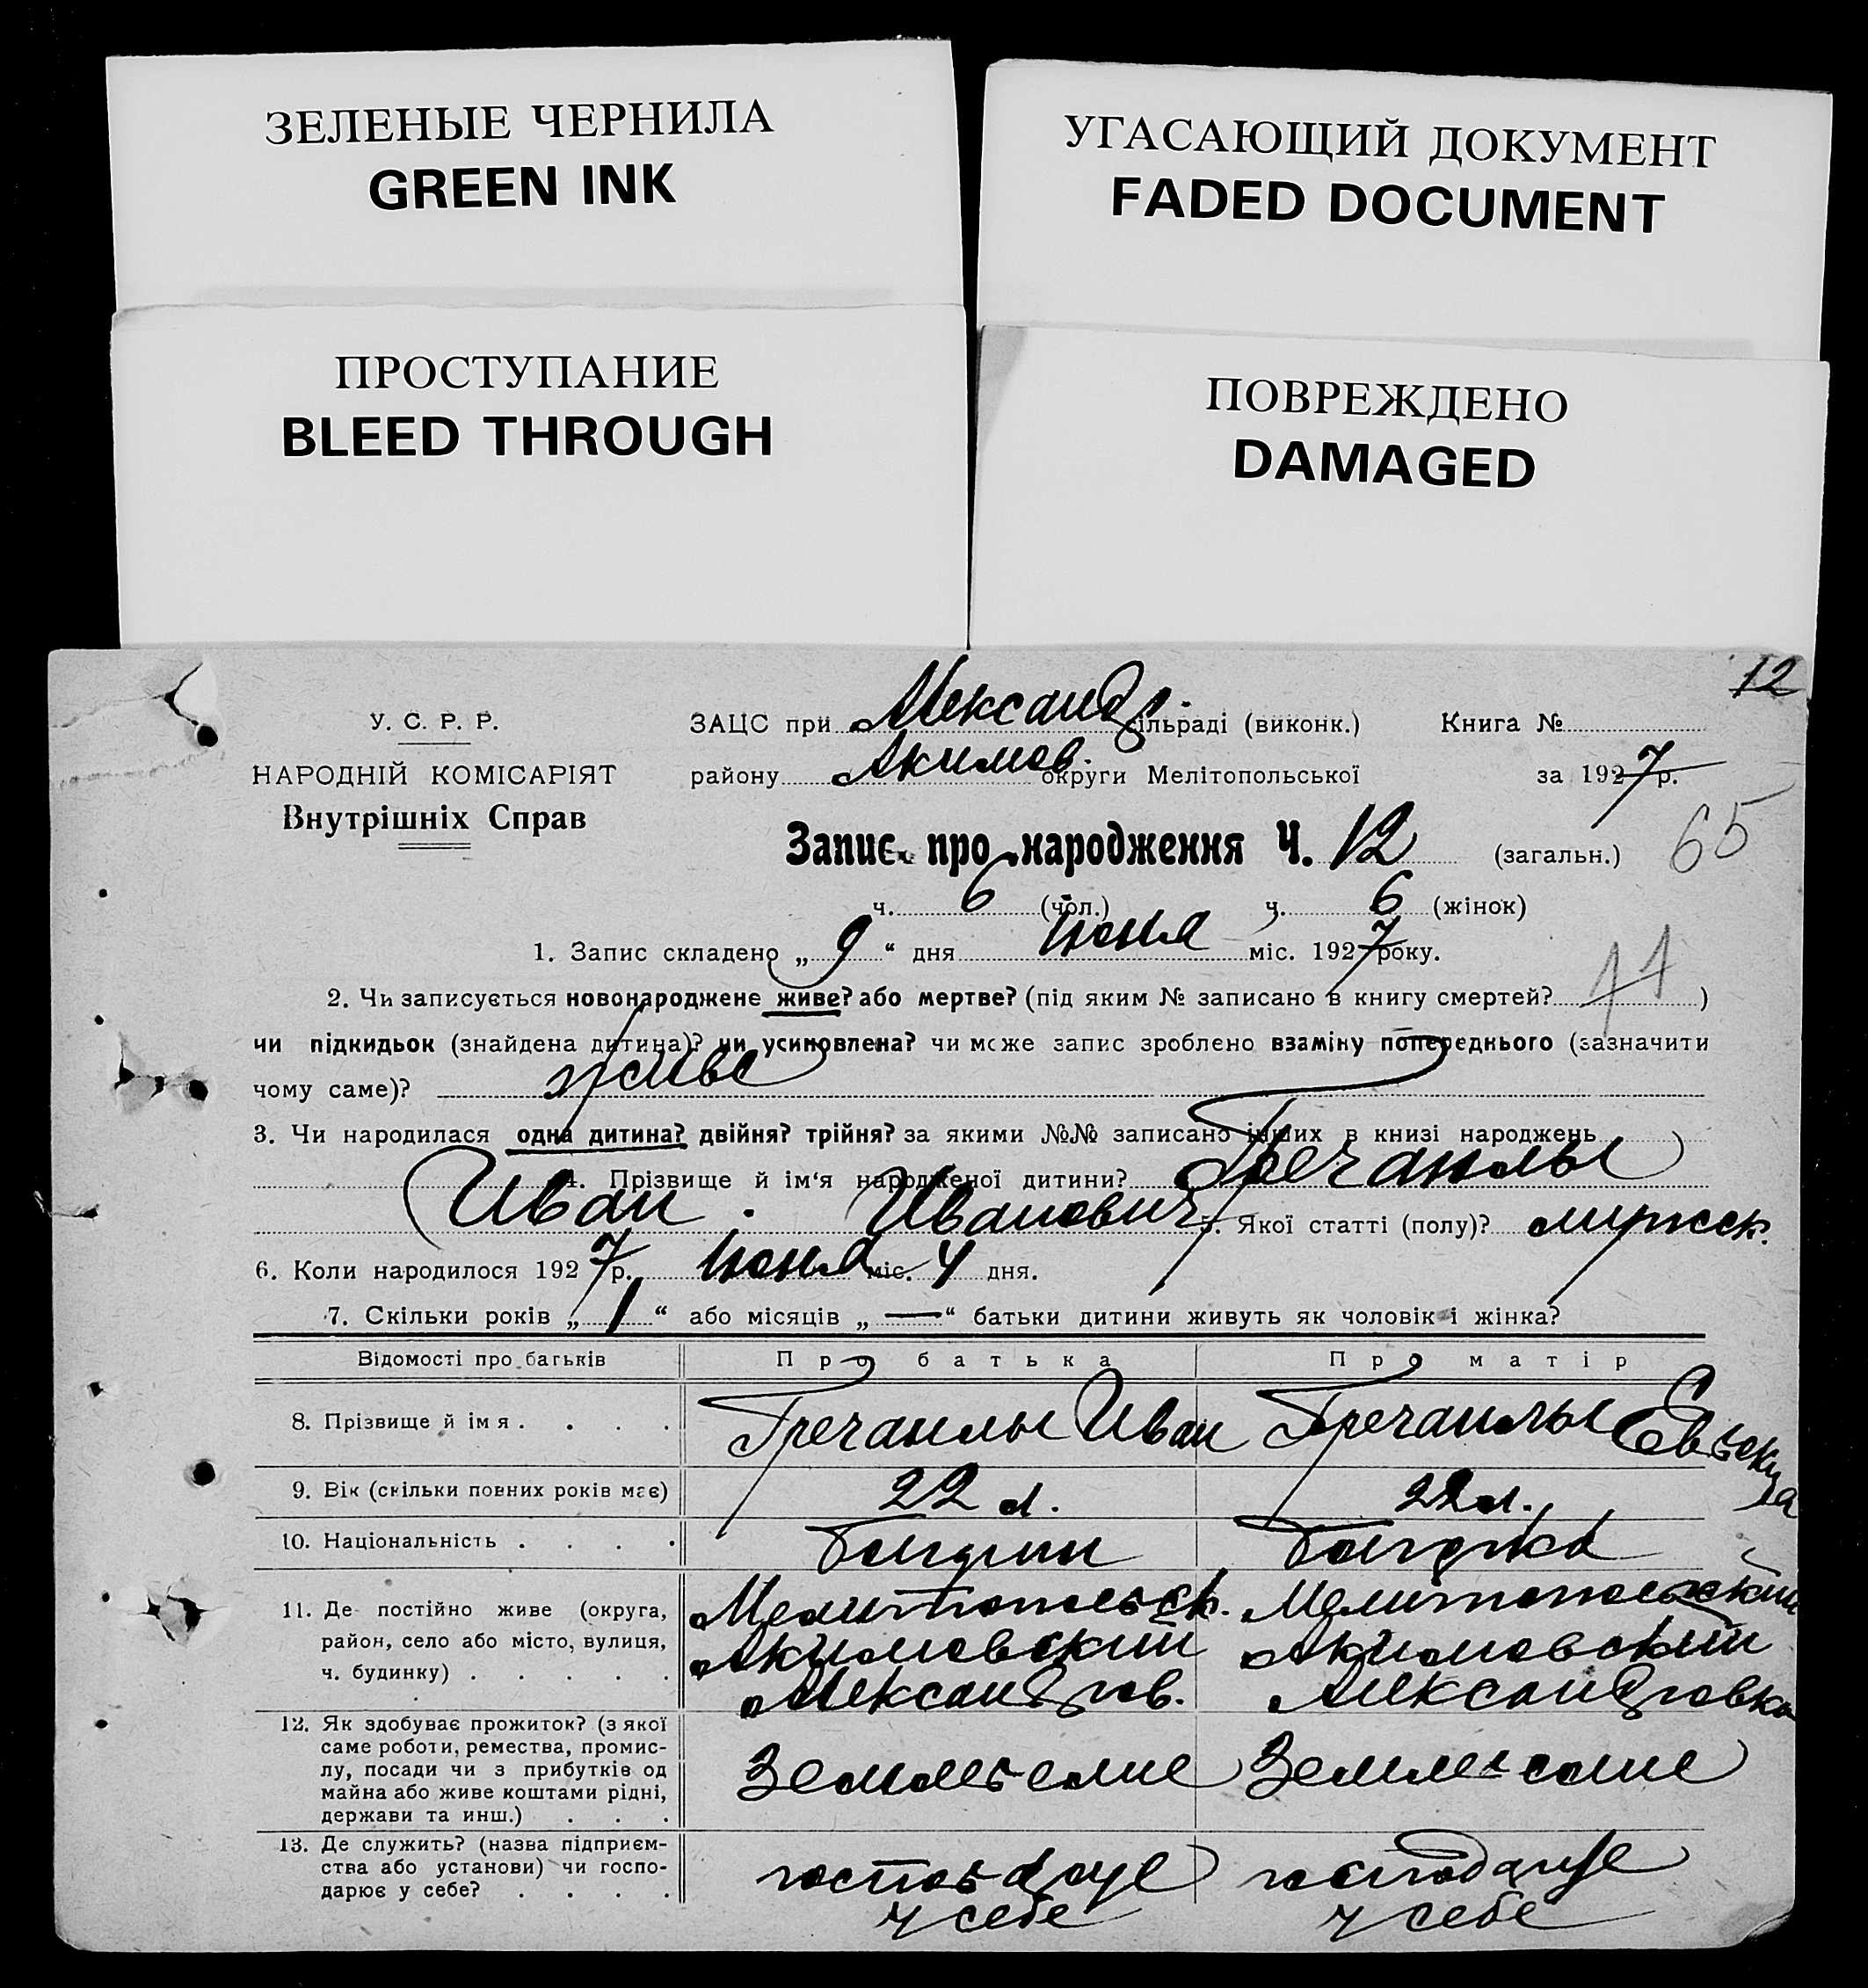 ЗЕЛЕНЫЕ ЧЕРНИЛА
GREEN INK
УГАСАЮЩИЙ ДОКУМЕНТ
FADED DOCUMENT
ПРОСТУПАНИЕ
BLEED THROUGH
ПОВРЕЖДЕНО
DAMAGED
12
У. С. Р. Р.
НАРОДНІЙ КОМІСАРІЯТ
Внутрішніх Справ
ЗАЦС при Александр. сільраді (виконк.) Книга №
району Акимов. округи Мелітопольської за 1927 р.
Запис про народження Ч. 12 (загальн.) 65
ч. 6 (чол.) ч. 6 (жінок)
1. Запис складено „ 9 “ дня июня міс. 1927 року.
2. Чи записується новонароджене живе? або мертве? (під яким № записано в книгу смертей? 11 )
чи підкидьок (знайдена дитина)? чи усиновлена? чи може запис зроблено взаміну попереднього (зазначити
чому саме)? живе
3. Чи народилася одна дитина? двійня? трійня? за якими №№ записано інших в книзі народжень
4. Прізвище й ім‘я народженої дитини? Гречаилы
Иван Иванович 5. Якої статті (полу)? мужск.
6. Коли народилося 1927 р. июня міс. 4 дня.
7. Скільки років „ 1 “ або місяців „ — “ батьки дитини живуть як чоловік і жінка?
Відомості про батьків Про батька Про матір
8. Прізвище й імя . . . . Гречаилы Иван Гречаилы
9. Вік (скільки повних років має) 22 л. 22 л.
10. Національність . . . . Болгарин Болгарка
11. Де постійно живе (округа, район, село або місто, вулиця, ч. будинку) . . . . .
Мелитопольск. Мелитопольский
Акимовский Акимовский
Александров. Александровка
12. Як здобуває прожиток? (з якої
саме роботи, ремества, промис-
лу, посади чи з прибутків од
майна або живе коштами рідні,
держави та инш.) . . .
13. Де служить? (назва підприєм-
ства або установи) чи госпо-
дарює у себе? . . . .
господарує господарує
у себе у себе